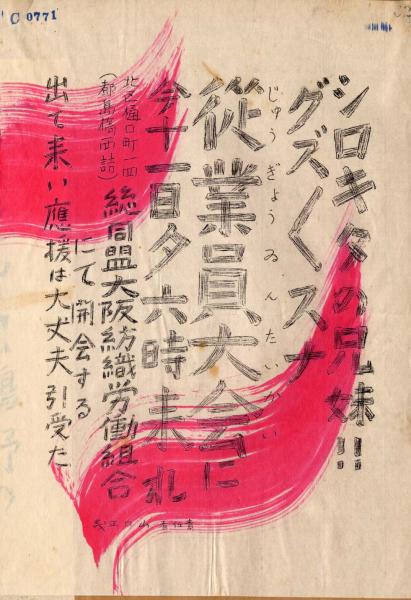 C 0771
シロキタの兄妹!!
グズ〱スナ
じゅうぎょうゐんたいかい
從業員大会に
今十一日夕六時来れ
北区樋口町一四
(都島橋西詰)
総同盟大阪紡織労働組合
にて開会する
出て来い應援は大丈夫引受た
責任者